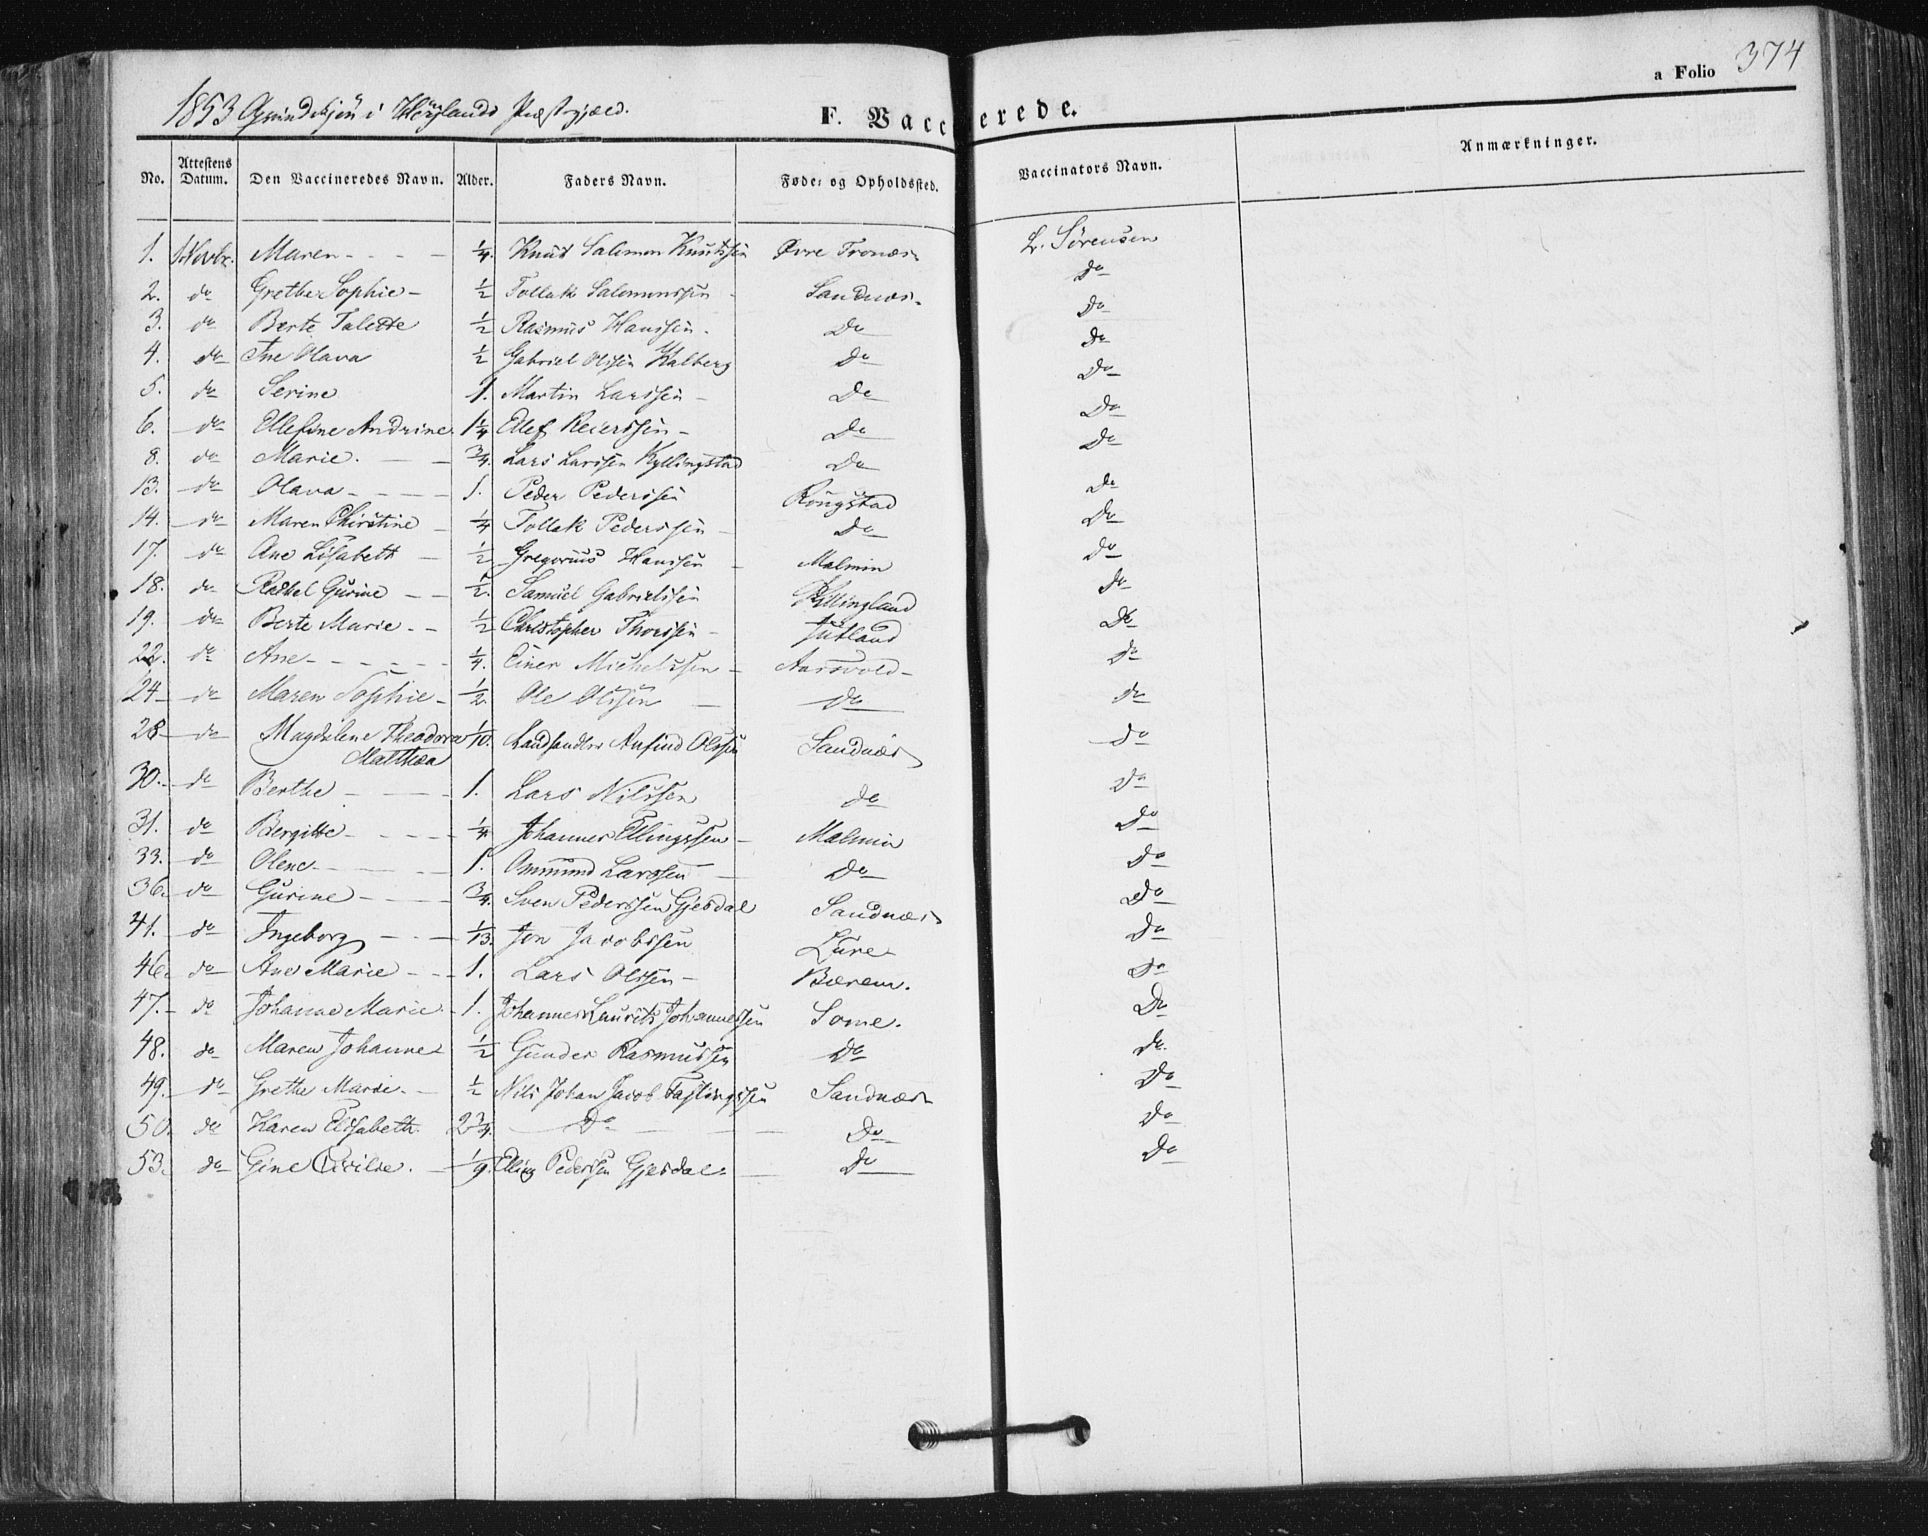 a Folio 374
1853 Qvindekjön i Höylands Præstegjæld.
F. Vaccinerede.
No. Attestens Datum. Den Vaccineredes Navn. Alder. Faders Navn. Føde- og Opholdssted. Vaccinators Navn. Anmærkninger.
1. 1 Novbr. Maren 1/4. Knud Salomon Knutssen Øvre Tronæs L. Sörensen
2. do Grethe Sophie 1/2 Tollak Salomonssen Sandnæs. Do
3. do Berte Talette 1/2 Rasmus Hanssen. Do Do
4. do Ine Olava 1/2 Gabriel Olssen Kalberg Do Do
5. do Serine 1. Martin Larssen Do Do
6. do Ellefine Andrine 1 1/4 Ellef Reierssen Do Do
8. do Marie. 3/4. Lars Larssen Kyllingstad Do Do
13. do Olava 1. Peder Pederssen Rongstad Do
14. do Maren Christine 1/4 Tollak Pederssen Do Do
17. do Ane Lisabeth 1/2 Gregorius Hanssen Malmin Do
18. do Rachel Gurine 1/2. Samuel Gabrielssen Skillingland Do
19. do Berte Marie. 1/2 Christopher Thorssen Jutland Do
22. do Ane 1/4. Einer Michelssen Aarsvold Do
24 do Maren Sophie 1/2. Ole Olssen Do do
28 do Magdalene Theodora 1/10. Landhandler Anfind Olssen Sandnæs do
Matthea
30. do Berthe 1. Lars Nilssen do Do
31. do Bergitte 1/4 Johannes Ellingssen Malmin Do
33. do Olene 1. Ommund Larssen Do Do
36. do Gurine 3/4. Sven Pederssen Gjesdal Sandnæs Do
41. do Ingeborg 1/13. Jon Jacobssen Lure Do
46. do Ane Marie 1. Lars Olssen Bærem. Do
47. do Johanne Marie 1. Johannes Laurits Johannessen Some. Do
48. do Maren Johanne 1/2 Gunder Rasmussen Do Do.
49. do Grethe Marie. 1/2 Nils Johan Jacob Sandnæs Do
50. do Karen Elisabeth 2 3/4. Do Do Do
53. do Gine Cecilie. 1/9. Elling Pederssen Gjesdal. Do Do